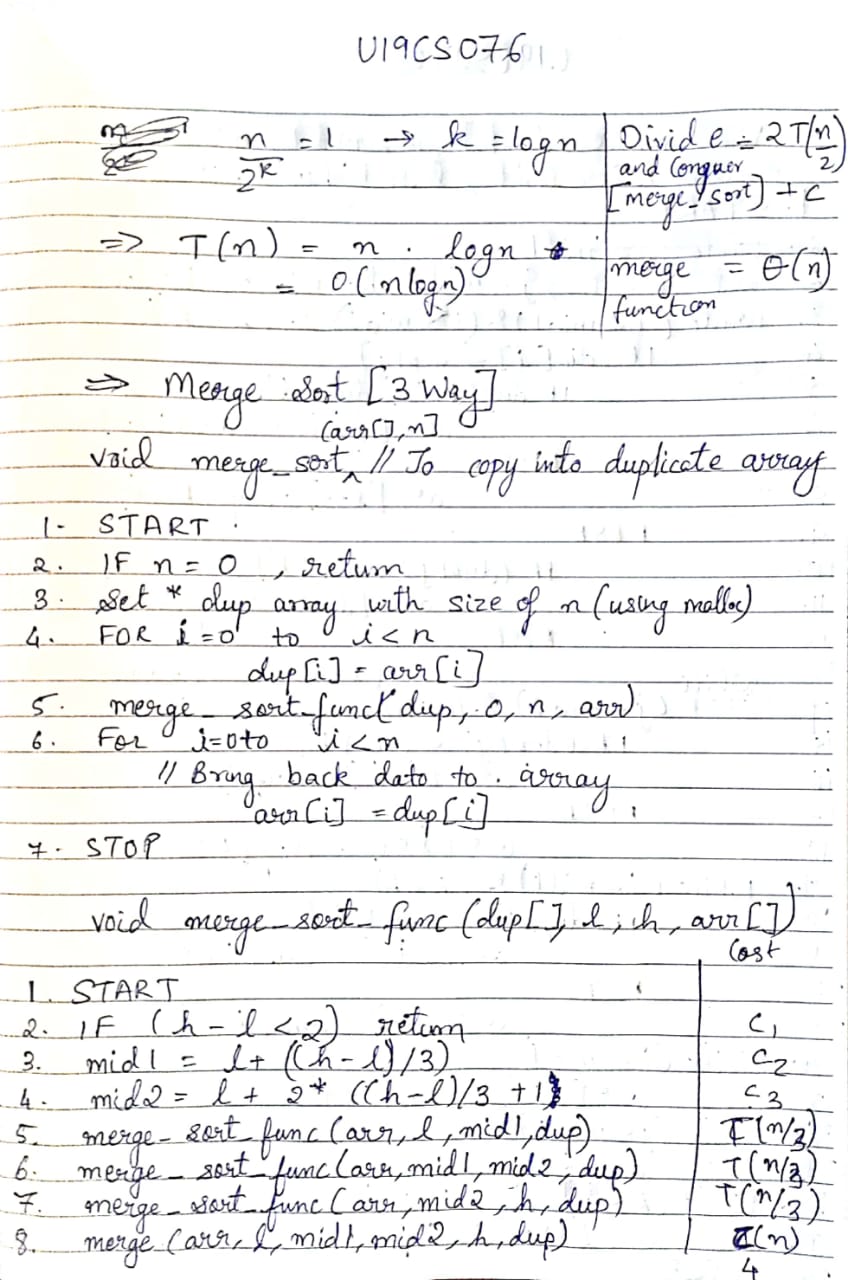 U19CS076
n/2^k = 1 → k = logn
Divide = 2T(n/2)
and Conquer
[merge_sort] + C
⇒ T(n) = n . logn
= O(nlogn)
merge = θ(n)
function
⇒ Merge Sort [3 Way]
(arr[], n]
void merge_sort‸ // To copy into duplicate array
1- START
2. IF n = 0 , return
3. Set * dup array with size of n (using malloc)
4. FOR i = 0 to i < n
dup[i] = arr[i]
5. merge_sort_func(dup, 0, n, arr)
6. For i=0 to i < n
// Bring back data to array
arr[i] = dup[i]
7. STOP
void merge_sort_func (dup[], l, h, arr[])
Cost
1. START
2. IF (h - l < 2) return C1
3. mid1 = l + ((h - l)/3) C2
4. mid2 = l + 2* ((h-l)/3 + 1) C3
5. merge_sort_func(arr, l, mid1, dup) T(n/3)
6. merge_sort_func(arr, mid1, mid2, dup) T(n/3)
7. merge_sort_func(arr, mid2, h, dup) T(n/3)
8. merge (arr, l, mid1, mid2, h, dup) (n)
4